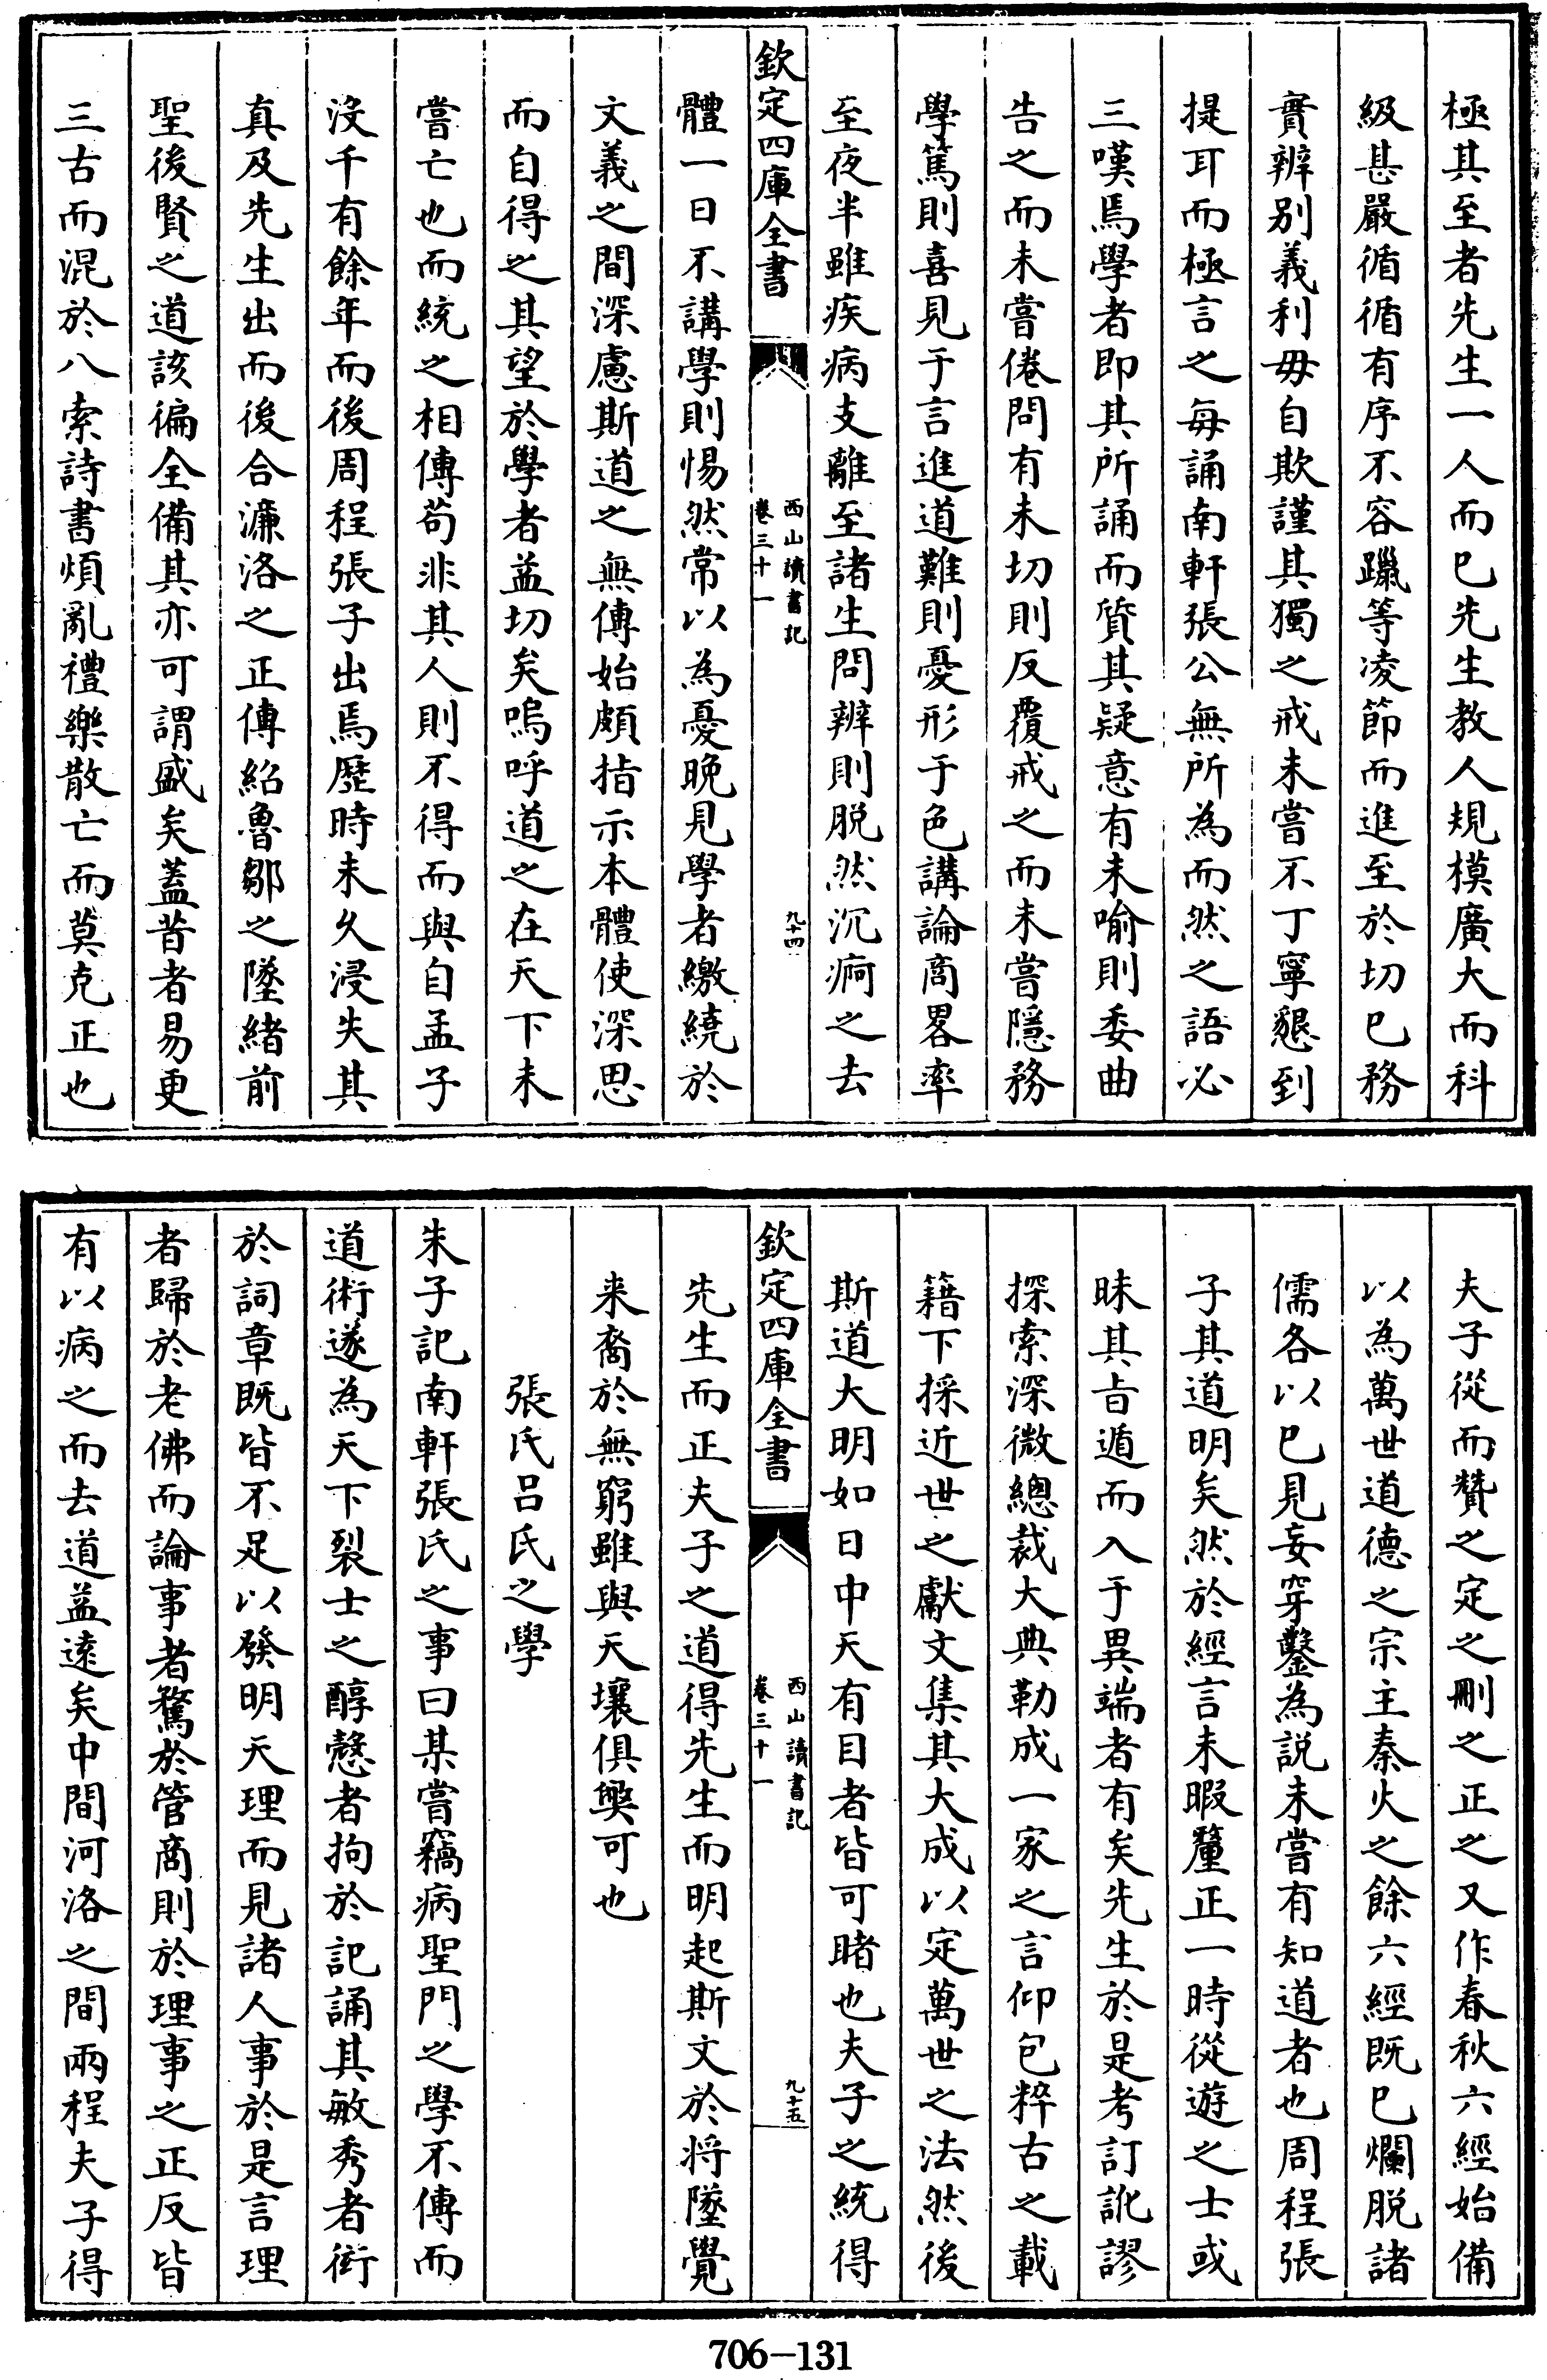 極其至者先生一人而已先生教人規模廣大而科
級甚嚴循循有序不容躐等凌節而進至於切已務
實辨别義利毋自欺謹其獨之戒未嘗不丁寧懇到
提耳而極言之每誦南軒張公無所為而然之語必
三嘆焉學者即其所誦而質其疑意有未喻則委曲
告之而未嘗倦問有未切則反覆戒之而未嘗隱務
學篤則喜見于言進道難則憂形于色講論商畧率
至夜半雖疾病支離至諸生問辨則脱然沉痾之去
欽定四庫全書
西山讀書記
卷三十一
九十四
體一日不講學則惕然常以為憂晚見學者繳繞於
文義之間深慮斯道之無傳始頗指示本體使深思
而自得之其望於學者益切矣嗚呼道之在天下未
嘗亡也而統之相傳苟非其人則不得而與自孟子
沒千有餘年而後周程張子出焉歷時未久浸失其
真及先生出而後合濂洛之正傳紹魯鄒之墜緒前
聖後賢之道該徧全備其亦可謂盛矣蓋昔者易更
三古而混於八索詩書煩亂禮樂散亡而莫克正也
夫子從而贊之定之刪之正之又作春秋六經始備
以為萬世道德之宗主秦火之餘六經既已爛脱諸
儒各以已見妄穿鑿為説未嘗有知道者也周程張
子其道明矣然於經言未暇釐正一時從遊之士或
昧其旨遁而入于異端者有矣先生於是考訂訛謬
探索深微總裁大典勒成一家之言仰包粹古之載
籍下採近世之獻文集其大成以定萬世之法然後
斯道大明如日中天有目者皆可睹也夫子之統得
欽定四庫全書
西山讀書記
卷三十一
九十五
先生而正夫子之道得先生而明起斯文於將墜覺
来裔於無窮雖與天壤俱獘可也
張氏呂氏之學
朱子記南軒張氏之事曰某嘗竊病聖門之學不傳而
道術遂為天下裂士之醇慤者拘於記誦其敏秀者衒
於詞章既皆不足以發明天理而見諸人事於是言理
者歸於老佛而論事者騖於管商則於理事之正反皆
有以病之而去道益遠矣中間河洛之間兩程夫子得
706-131